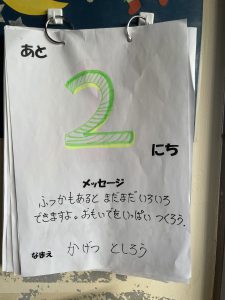 あと
2
にち
メッセージ
ふつかもあると まだまだ いろいろ
できますよ。おもいでを いっぱい つくろう。
なまえ
かげつ としろう